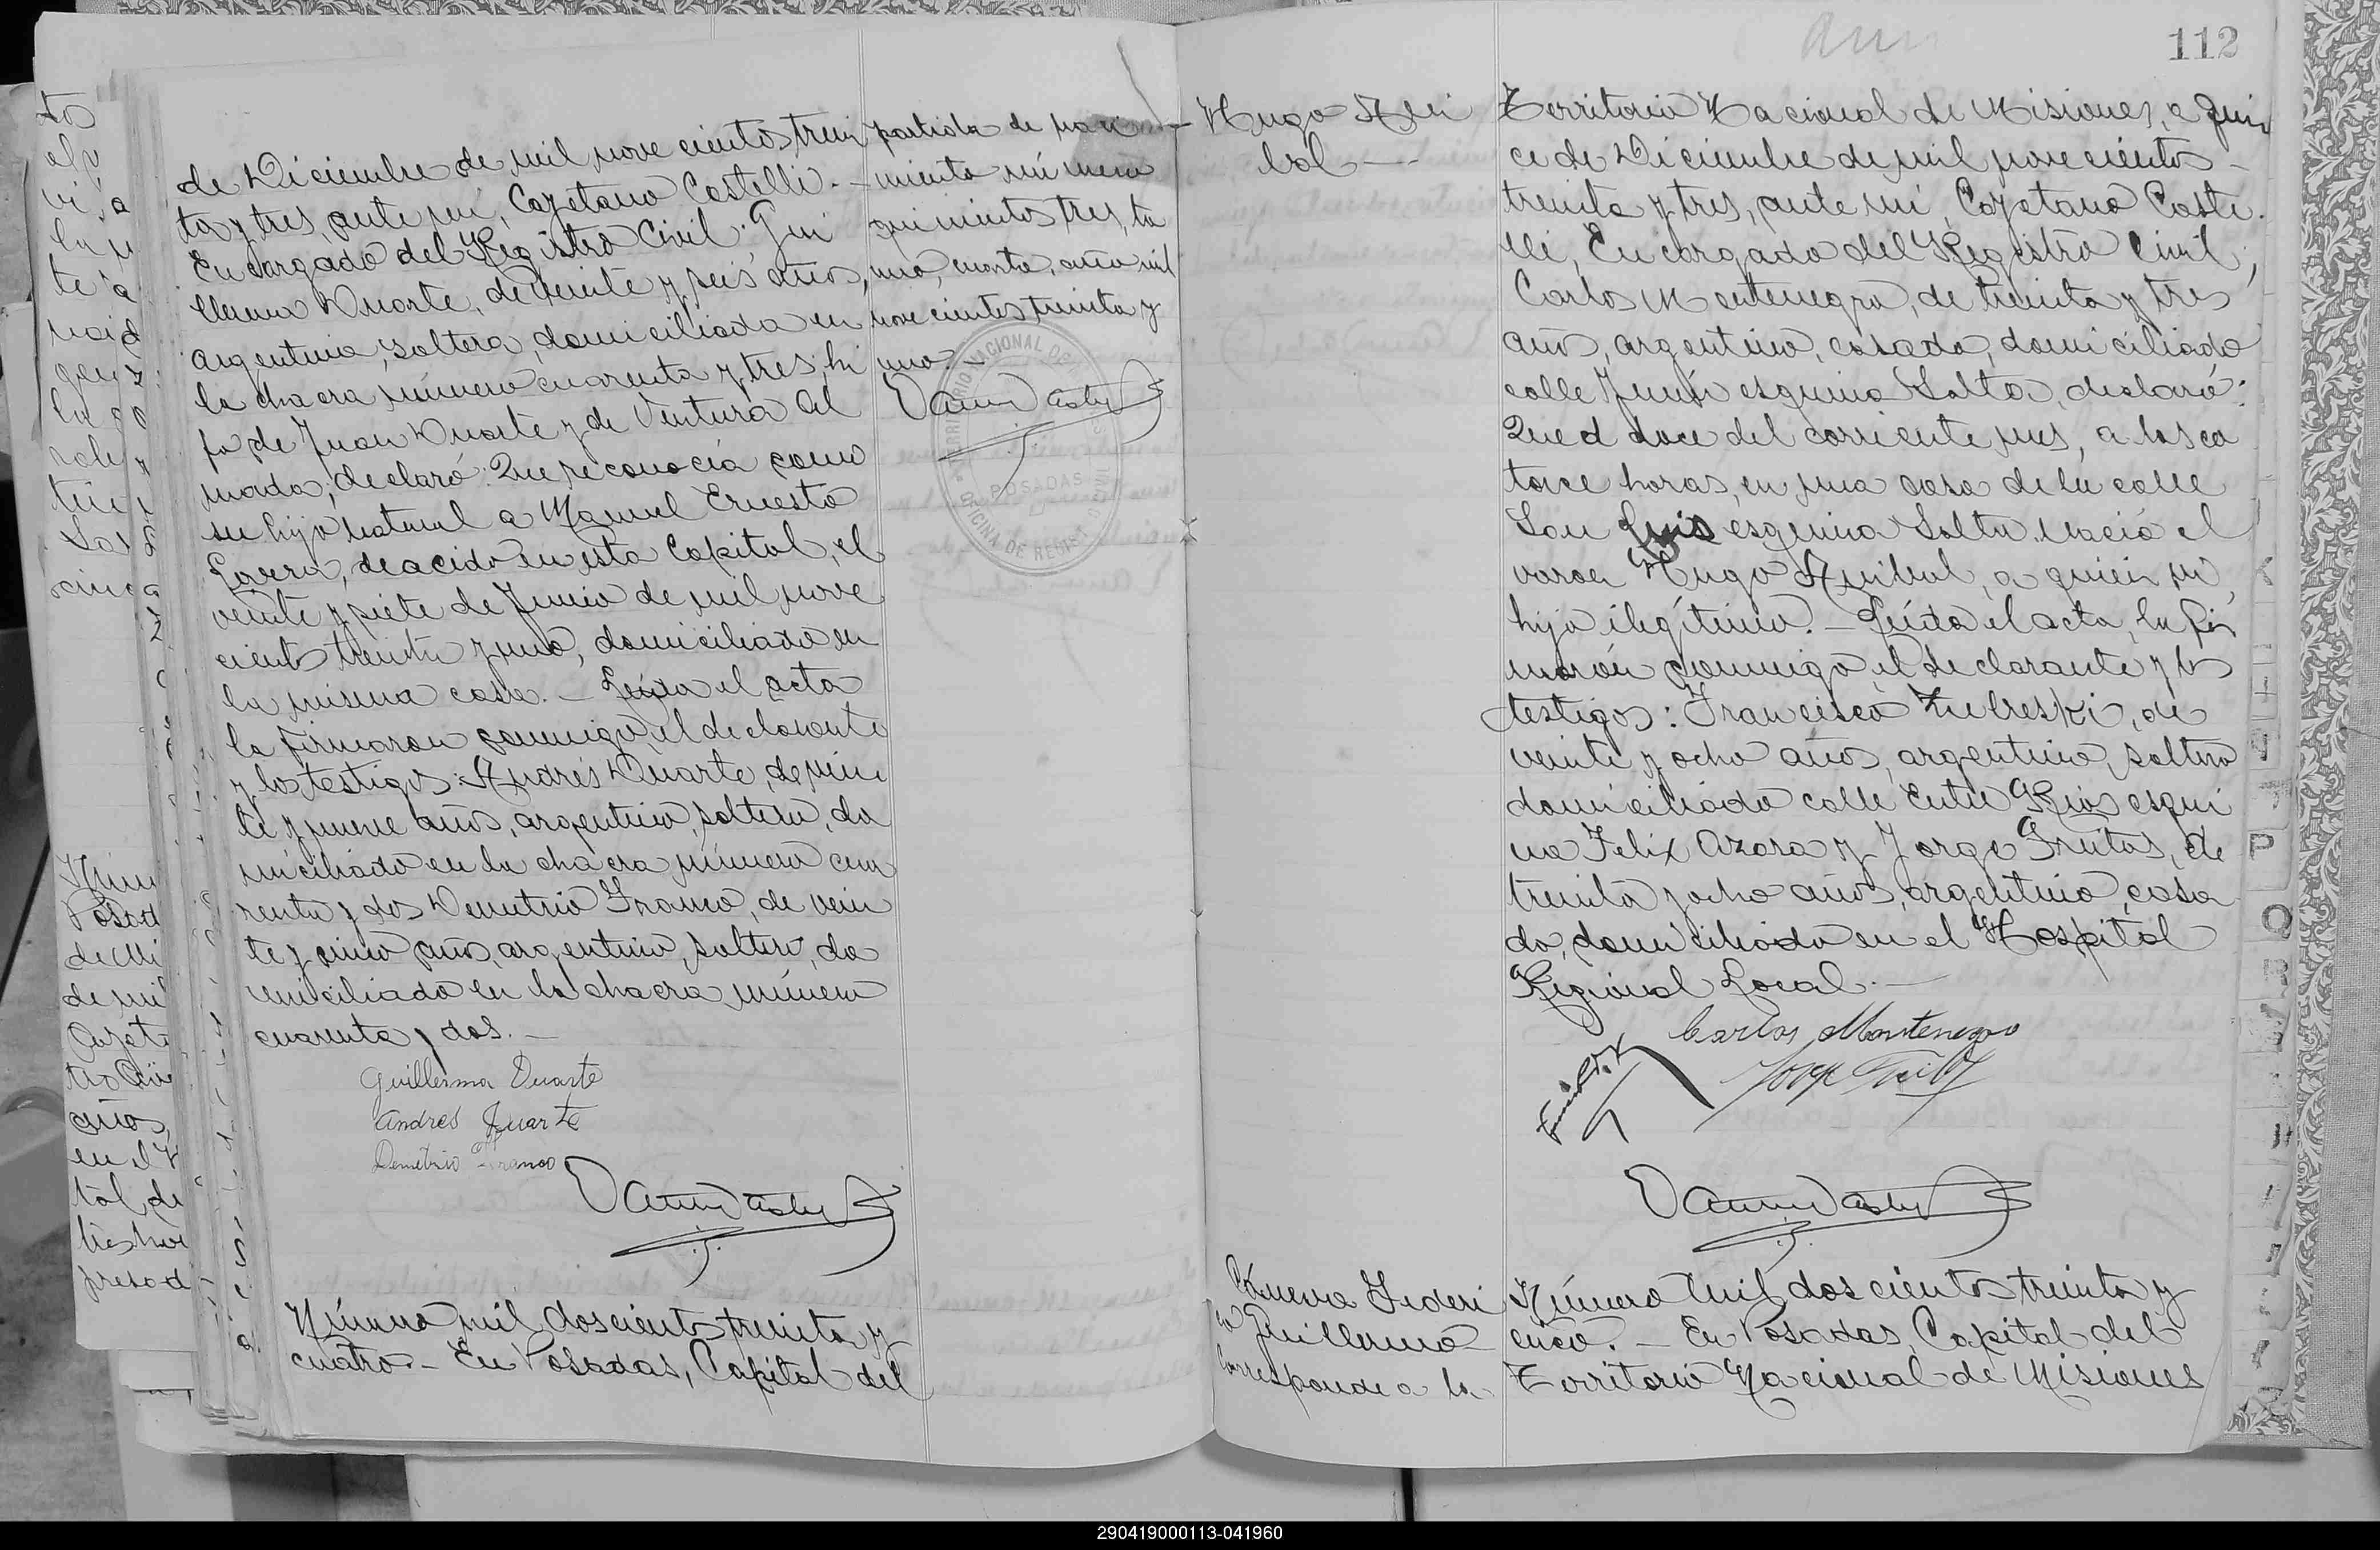 de Diciembre de mil nove cientos trein
ta y tres, ante mi, Cayetano Castelli.-
Encargado del Registro Civil: Gui
llerma Duarte, de veinte y seis años,
argentina, soltera, domiciliada en
la chacra número cuarenta y tres, hi
ja de Juan Duarte y de Ventura Al
mada; declaró: Que reconocía como
su hijo natural a Manuel Ernesto
nacido en esta Capital, el
veinte y siete de Junio de mil nove
cientos treinta y uno, domiciliado en
la misma casa.- Leída el acta
la firmaron conmigo, el declarante
y los testigos: Andrés Duarte, de vein
te y nueve años, argentino, soltero, do
miciliado en la chacra número cua
renta y dos Demetrio Franco, de vein
te y cinco años, argentino, soltero, do
miciliado en la chacra número
cuarenta y dos.-
Guillerma Duarte
Andres Duarte
Demetrio Franco
Número mil doscientos treinta y
cuatro.- En Posadas, Capital del
partida de naci
miento número
quinientos tres, to
mo, cuarto, año mil
nove cientos treinta y
uno.
TERRITORIO NACIONAL DE
POSADAS
OFICINA DE REGIST CIVIL
112
Hugo Aní
bal
Territorio Nacional de Misiones, a quin
ce de Diciembre de mil nove cientos
treinta y tres, ante mi, Cayetano Caste
lli, Encargado del Registro Civil,
Carlos Montenegro, de treinta y tres
años, argentino, casado, domiciliado
calle Junín esquina Salta, declaró:
Que el doce del corriente mes, a las ca
torce horas, en una casa de la calle
San Luis esquina Salta nació el
varon Hugo Anibal, a quien su
hijo ilegítimo.- Leída el acta, la fir
marón conmigo, el declarante y los
testigos: Francisco Zubreski, de
veinte y ocho años, argentino, soltero
domiciliado calle Entre Rios esqui
na Felix Azara y Jorge Frutos, de
treinta y ocho años, argentino, casa
do, domiciliado en el Hospital
Regional Local.-
Carlos Montenegro
Número mil dos cientos treinta y
cinco.- En Posadas, Capital del
Territorio Nacional de Misiones
Federi
co Guillermo
Corresponde a la
290419000113-041960